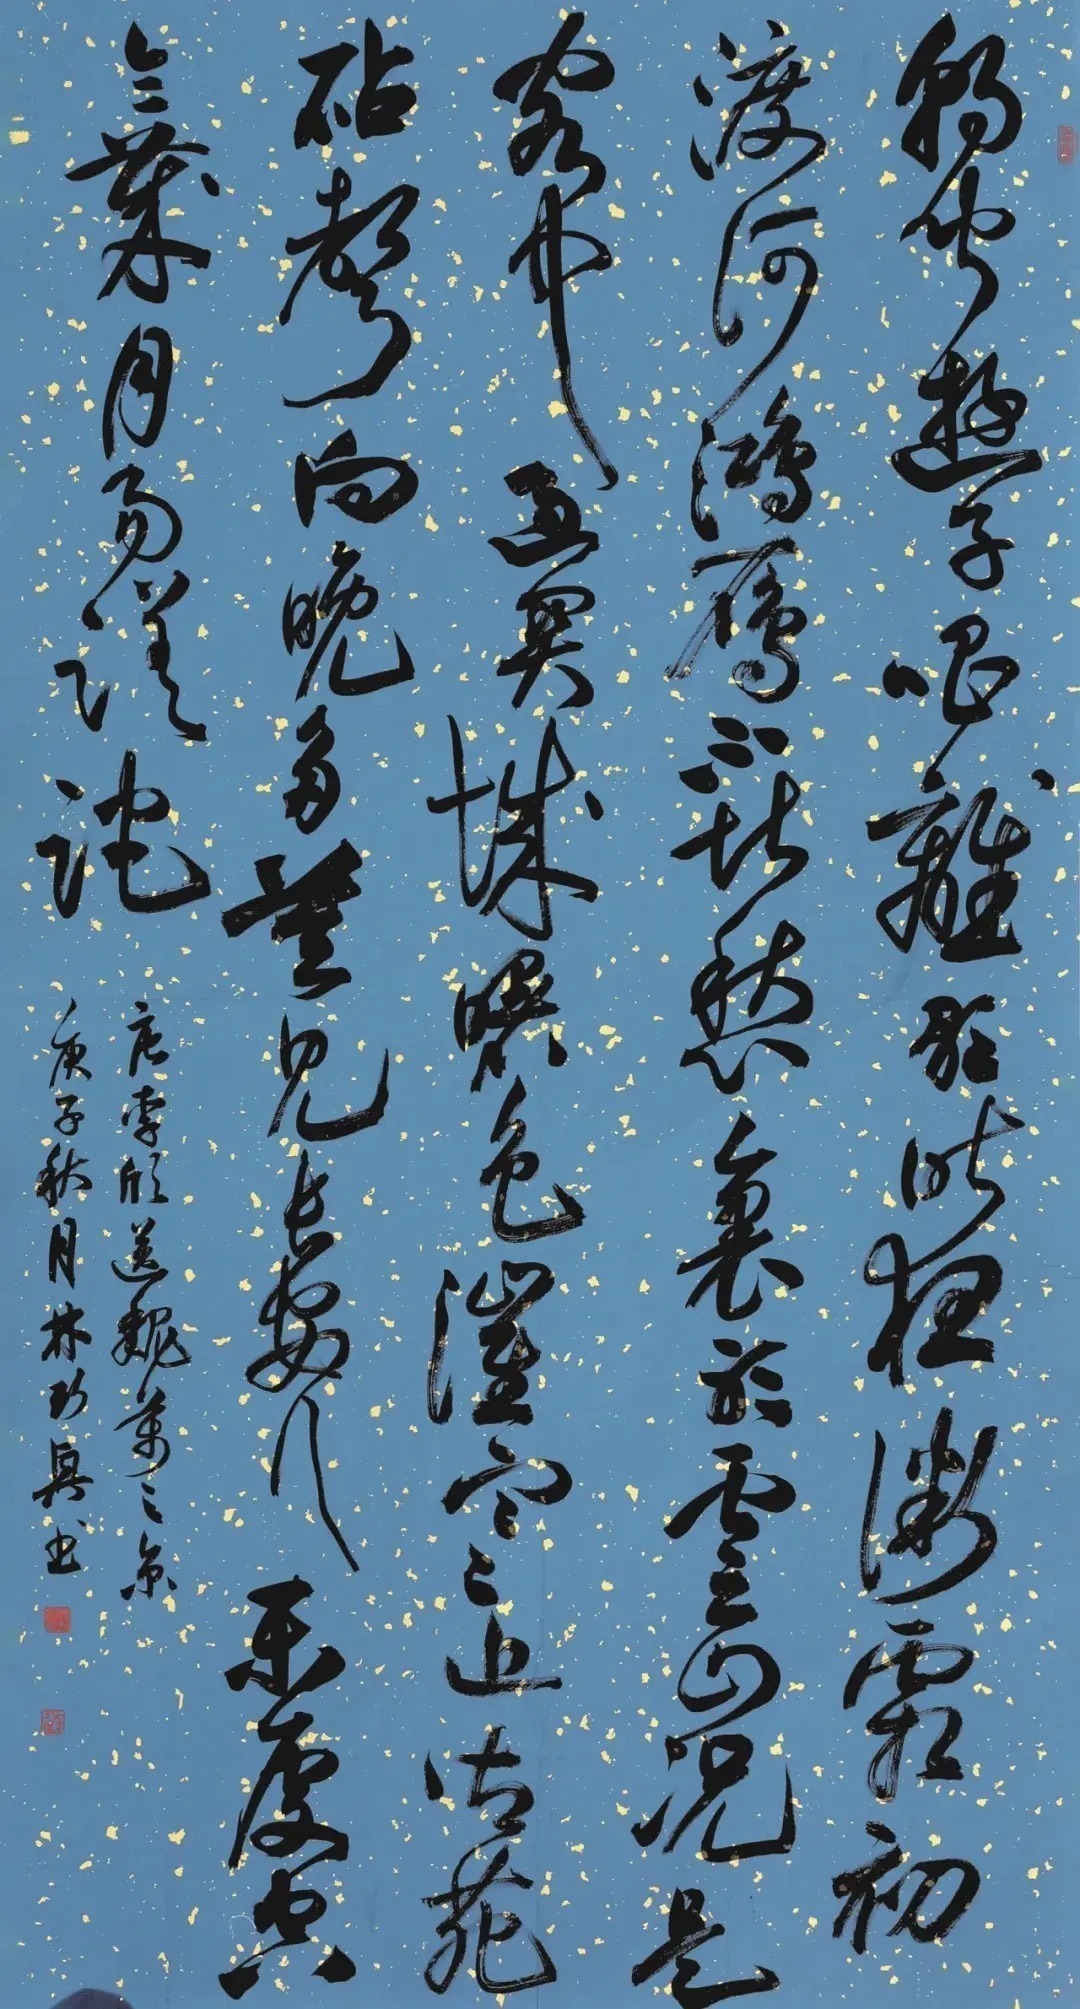 朝聞遊子唱離歌昨夜微霜初
渡河鴻雁不堪愁裏聽雲山況是
客中過關城曙色催寒近御苑
砧聲向晚多莫見長安行樂處空
令歲月易蹉跎
唐李頎送魏萬之京
庚子秋月林巧書